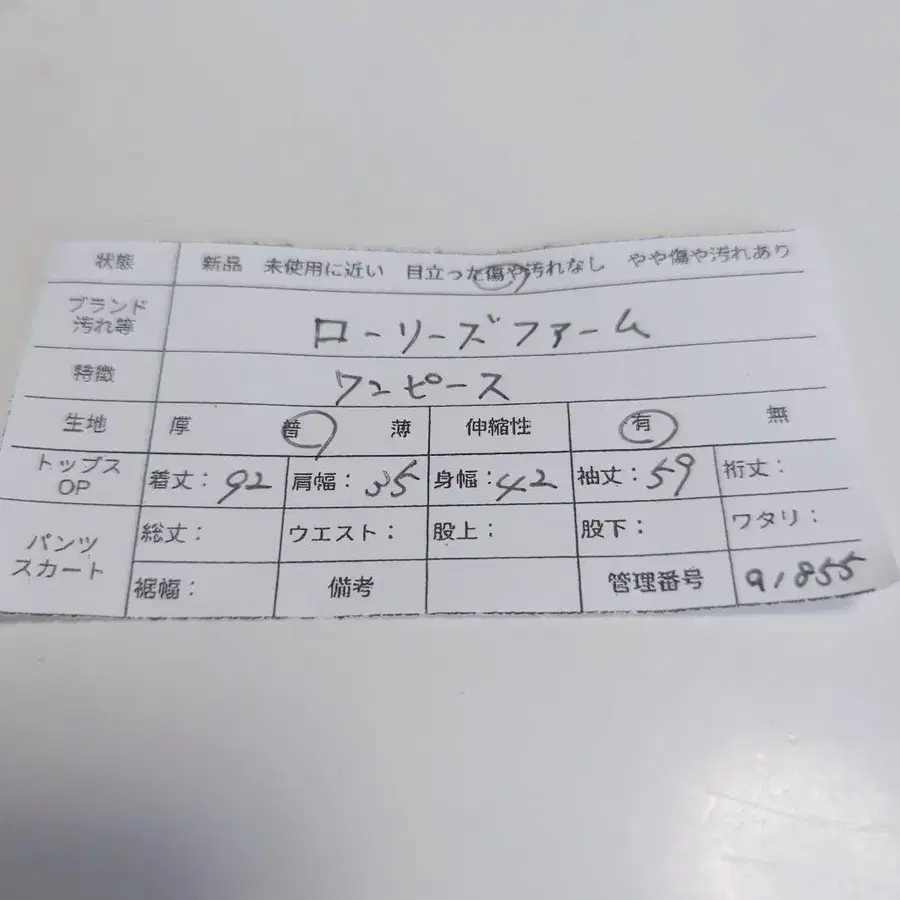 状態 新品 未使用に近い 目立った傷や汚れなし やや傷や汚れあり
ブランド
汚れ等 ローリーズファーム
特徴 ワンピース
生地 厚 普 薄 伸縮性 有 無
トップス
OP 着丈：92 肩幅：35 身幅：42 袖丈：59 裄丈：
パンツ
スカート 総丈： ウエスト： 股上： 股下： ワタリ：
裾幅： 備考 管理番号 91855